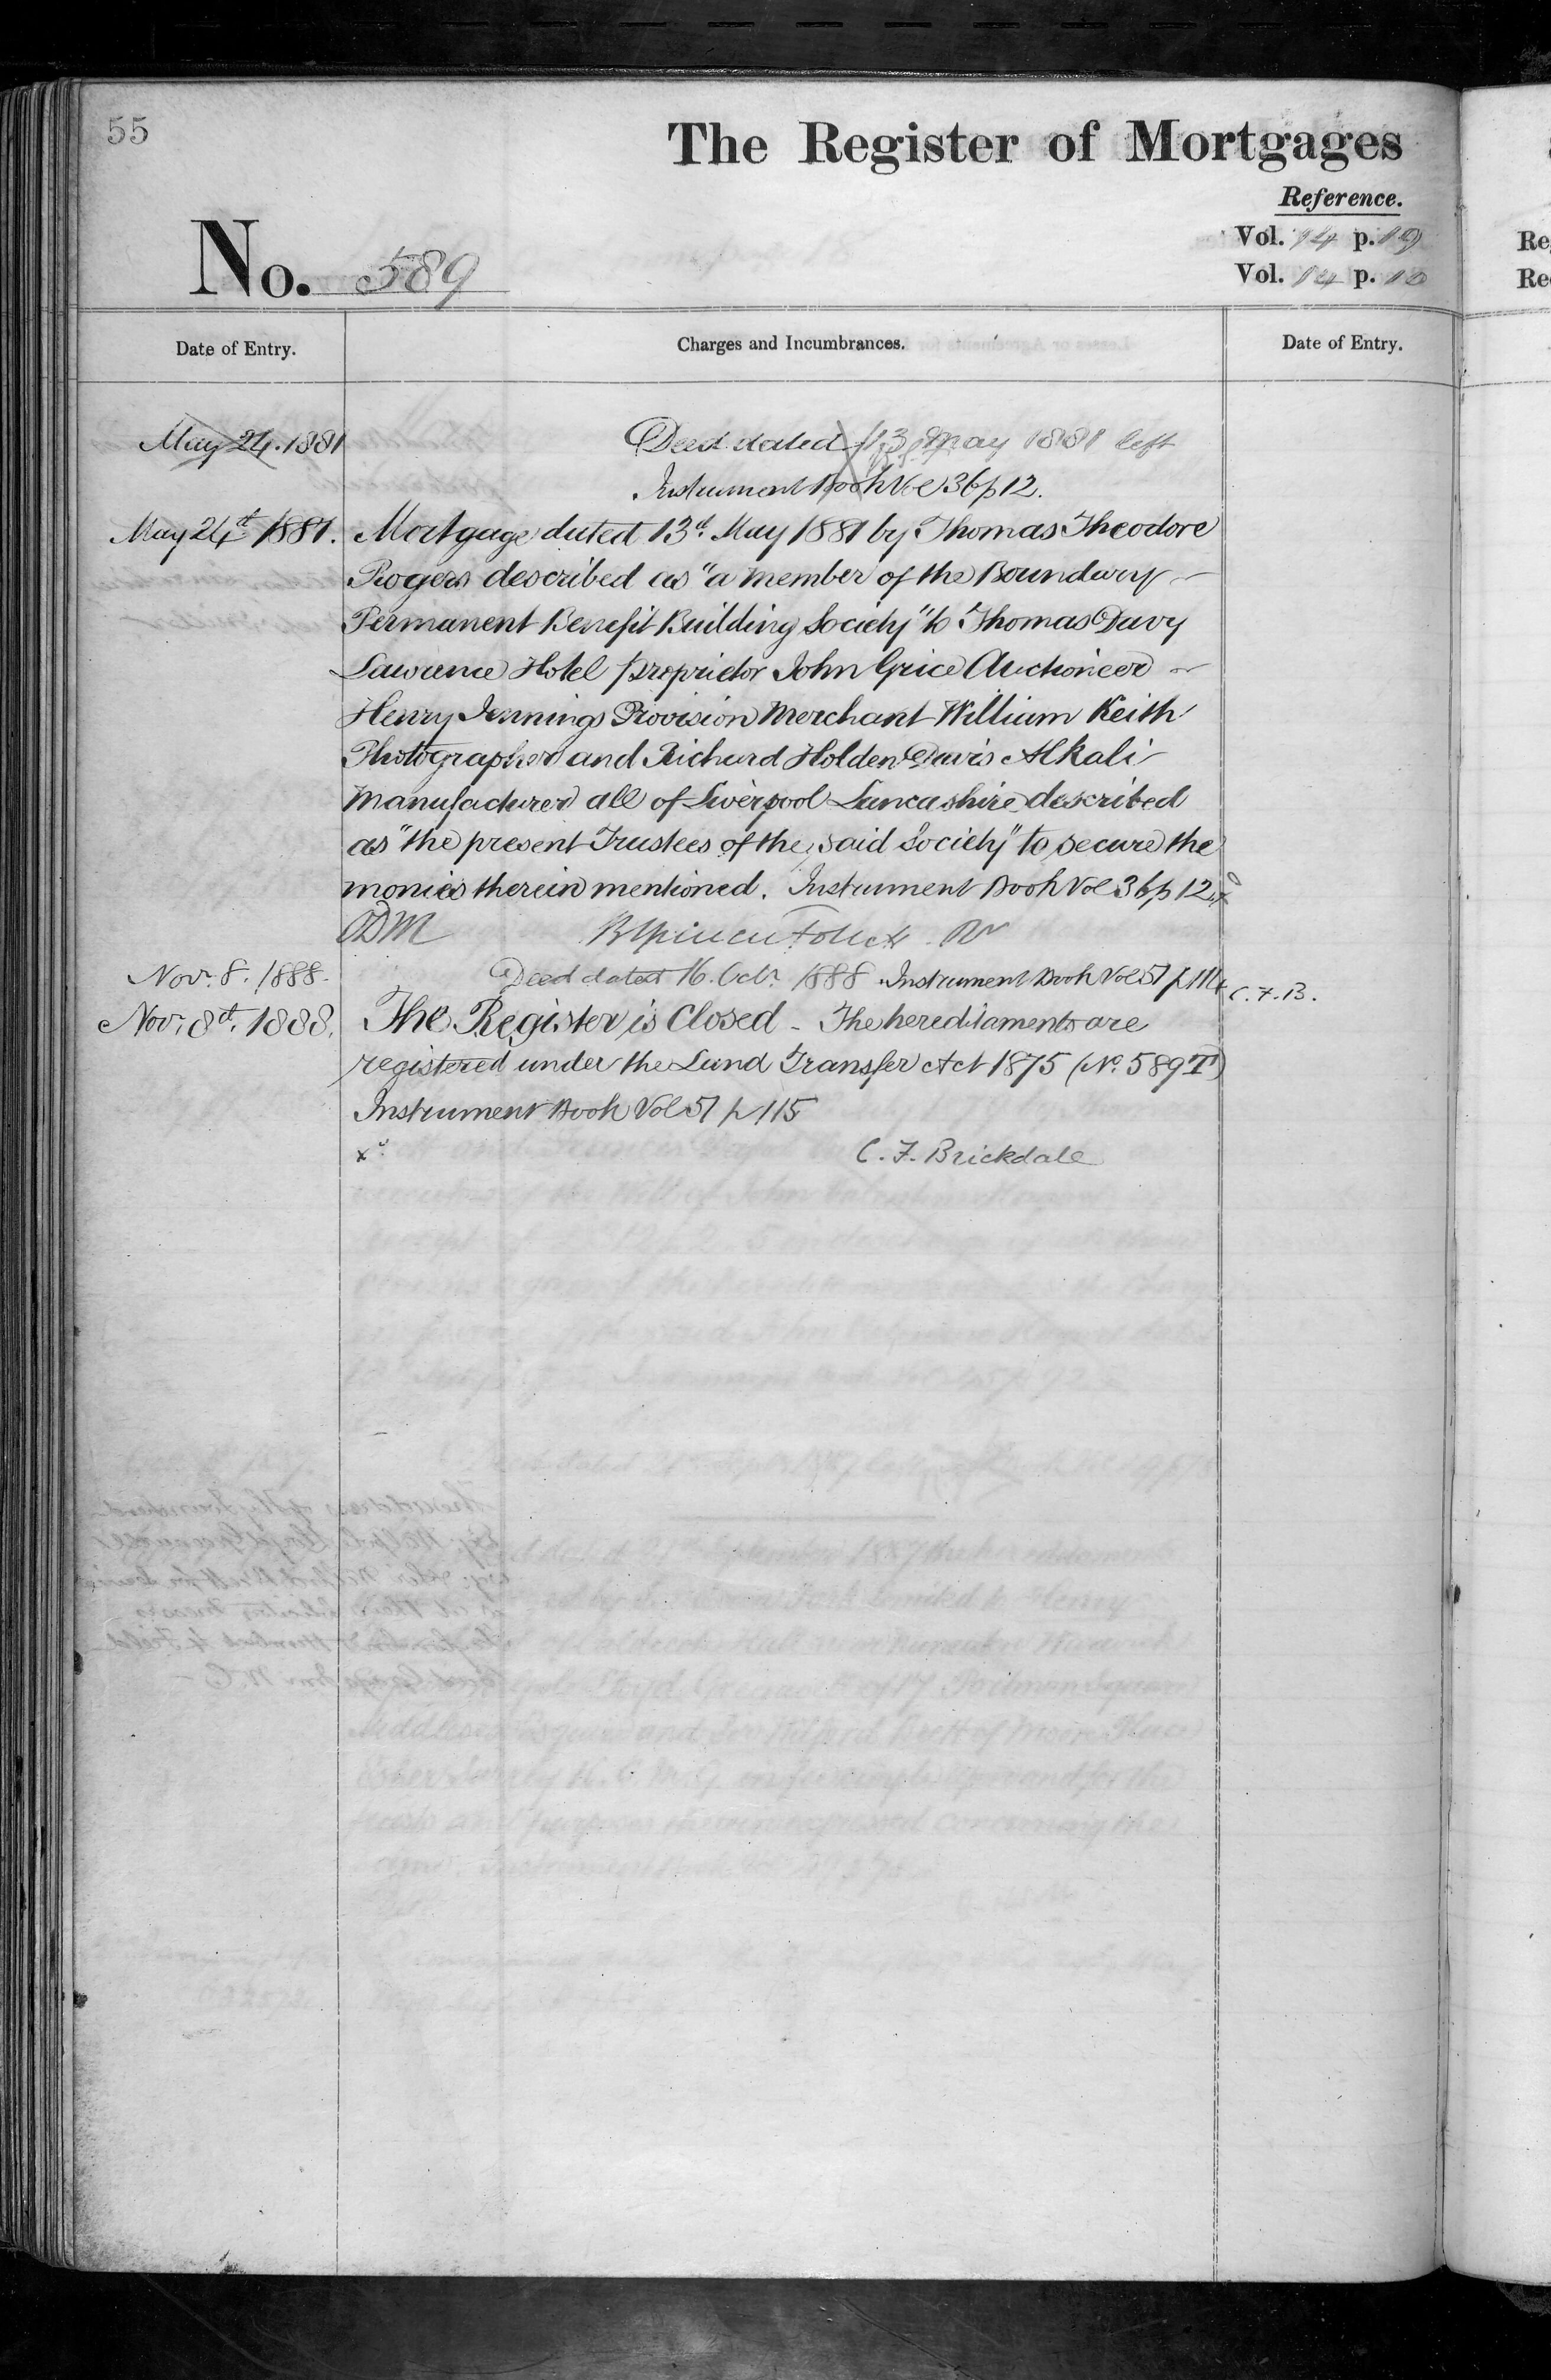 55
The Register of Mortgages
Reference.
Vol. 14 p. 19
Vol. 14 p.
No. 589
Date of Entry.
Charges and Incumbrances.
Date of Entry.
May 24. 1881
Deed dated 13 May 1881 left
Instrument Book Vol 36 p 12.
May 24th 1881.
Mortgage dated 13th May 1881 by Thomas Theodore
Rogers described as "a member of the Boundary
Permanent Benefit Building Society" to Thomas Davy
Lawrence Hotel proprietor John Grice Auctioneer
Henry Jennings Provision Merchant William Keith
Photographer and Richard Holden Davis Alkali
Manufacturer all of Liverpool Lancashire described
as "the present Trustees of the said Society" to secure the
monies therein mentioned. Instrument Book Vol 36 p 12.
Novr. 8. 1888.
Deed dated 16. Octr. 1888 Instrument Book Vol 51 p 114
C. F. B.
Novr. 8th. 1888.
The Register is Closed - The hereditaments are
registered under the Land Transfer Act 1875 (No. 589 T)
Instrument Book Vol 51 p 115
C. F. Brickdale